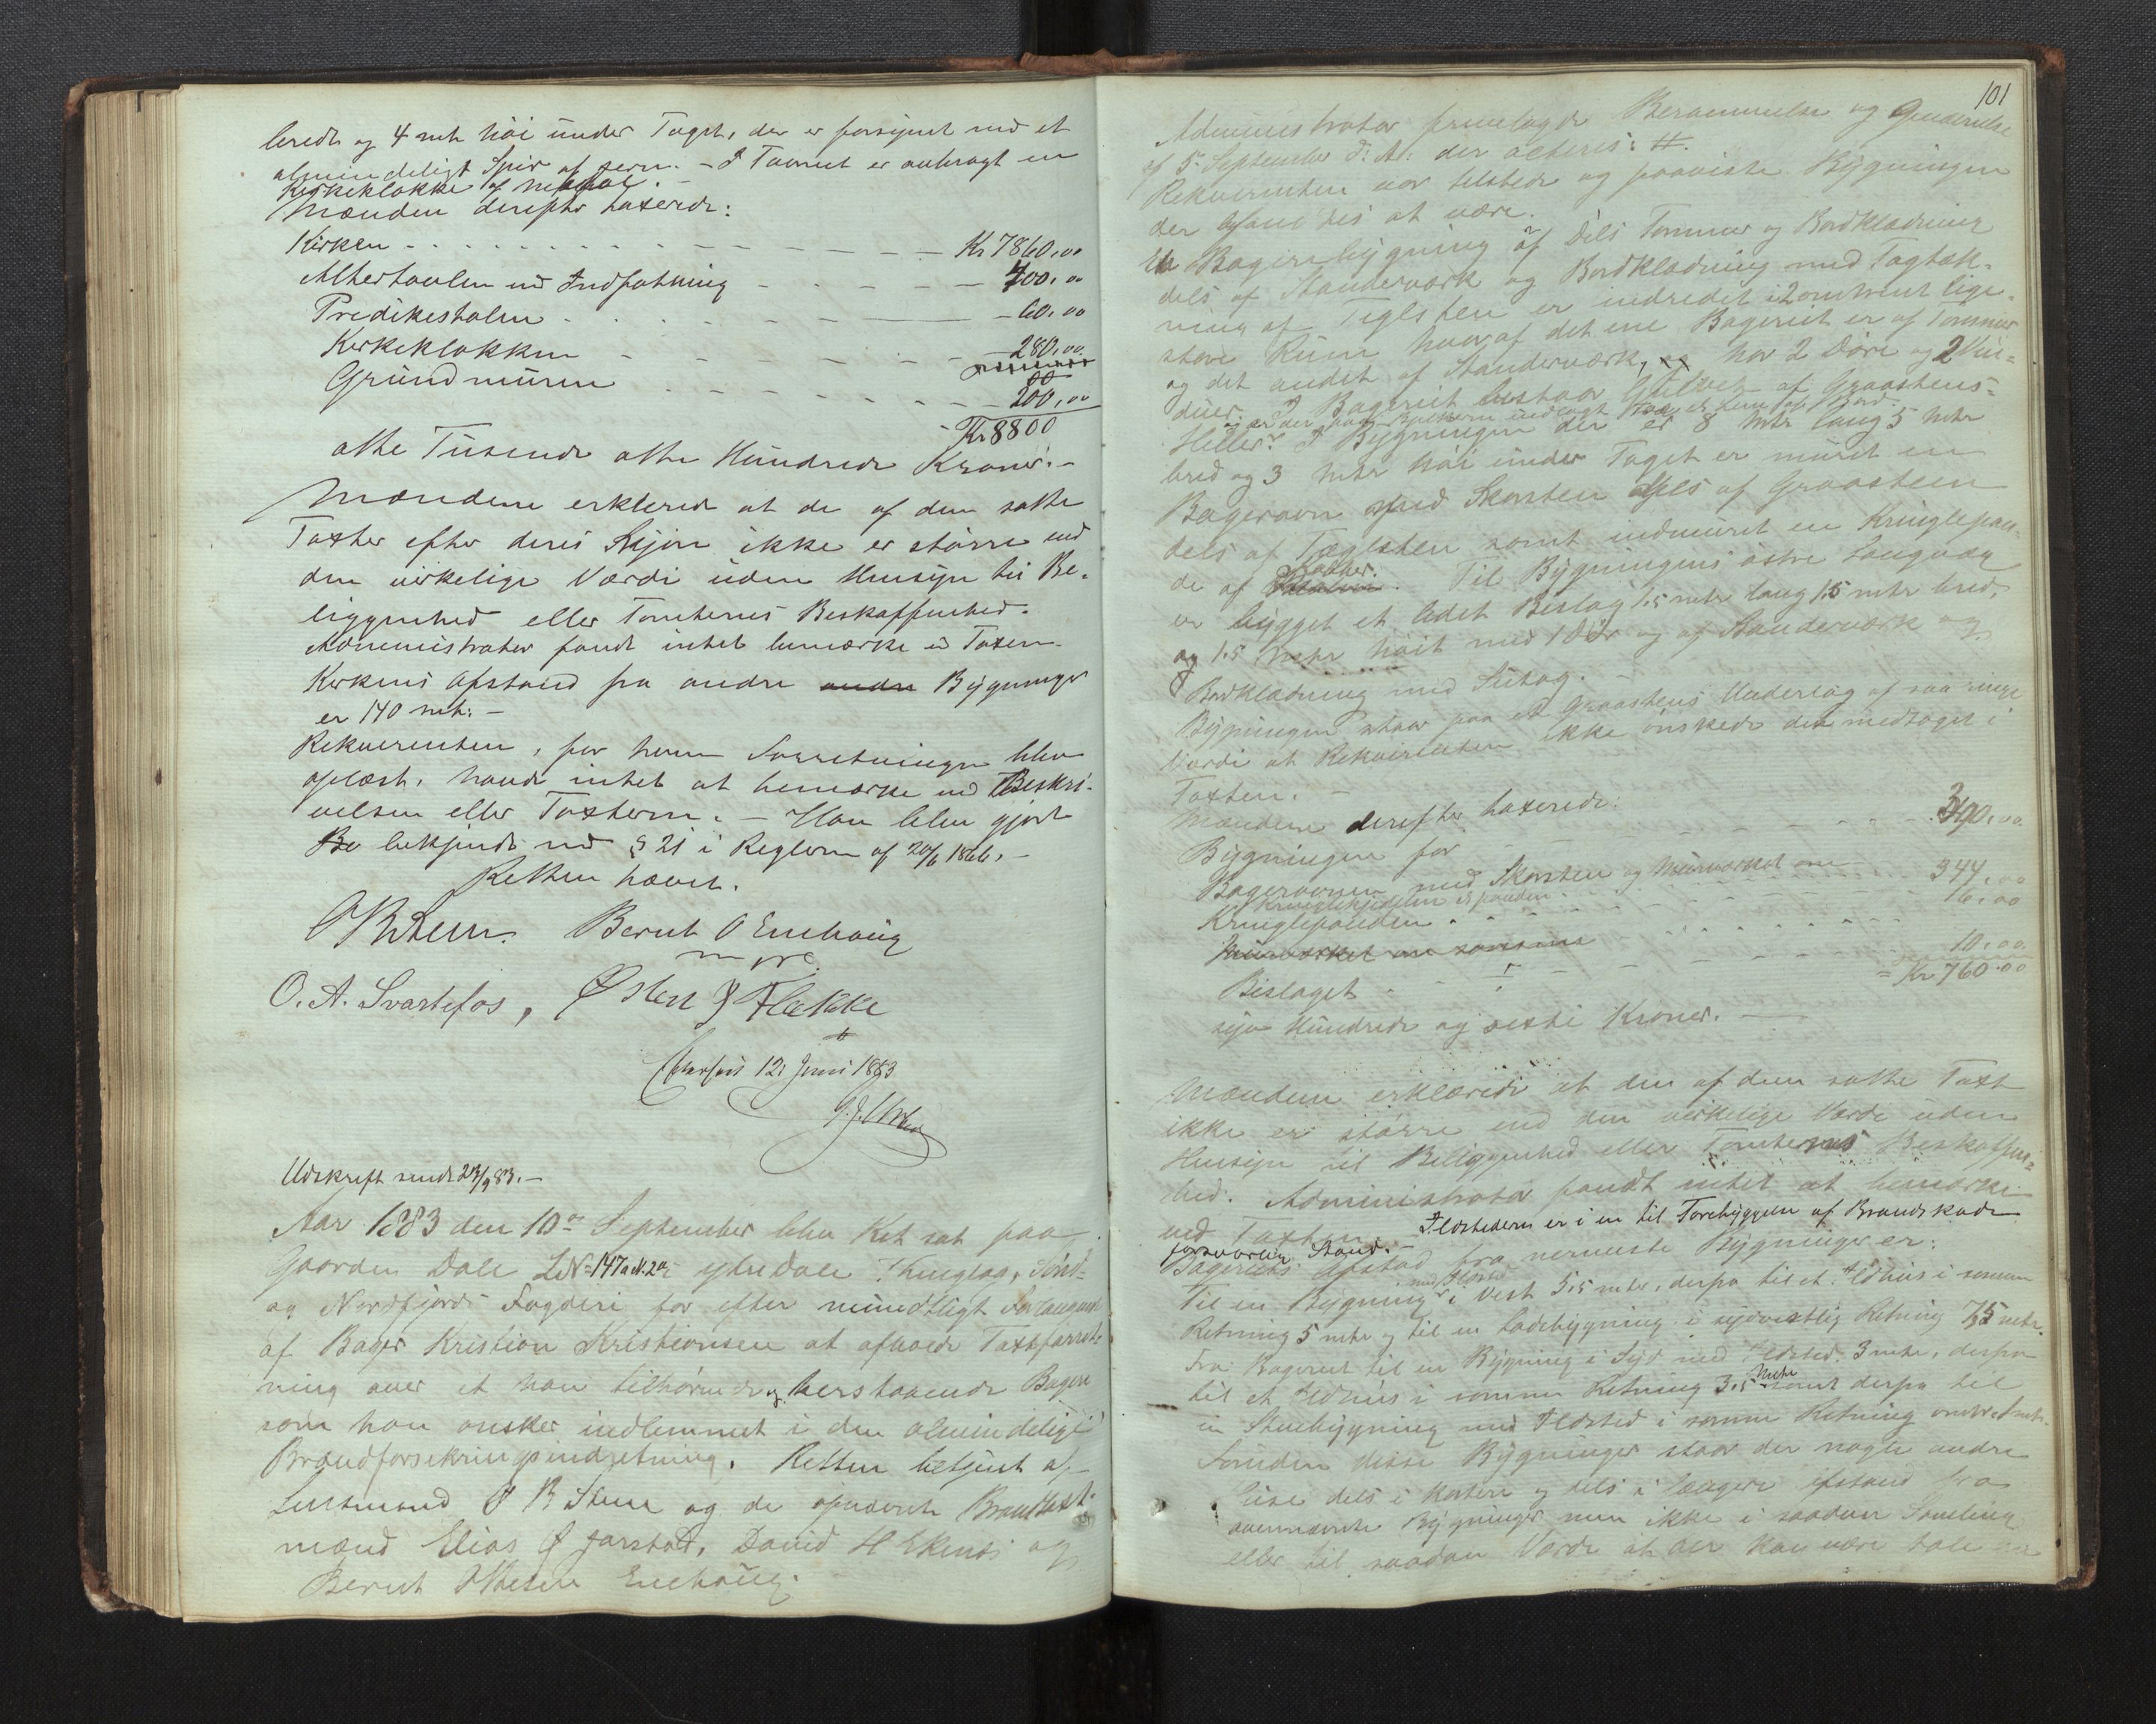 bredt og 4 mtr høi under Taget, der er forsynet med et
almindeligt Spir af Jern. - I Taarnet er anbragt en
Kirkeklokke af Metal. -
Mænden derefter taxerede:
Kirken - - - - - Kr 7860,00
Altertavlen med Indfatning - - - - 400,00
Predikestolen - - - - 60,00
Kirkeklokken - - - - 280,00
Grundmuren - - - - 200,00
Kr 8800
otte Tusende otte Hundrede Kroner. -
Mændene erklered at de af dem satte
Taxter efter deres Skjøn ikke er større end
den virkelige Værdi uden Hensyn til Be-
liggenhed eller Tomternes Beskaffenhed.
Administrator fandt intet bemærke ved Taxten.
Kirkens Afstand fra andre andre Bygninger
er 140 mtr. -
Rekvirenten, for hvem Forretningen blev
oplæst, havde intet at bemærke ved Beskri-
velsen eller Taxterne. - Han blev gjort
Be bekjendt med § 21 i Reglerne af 20/6 1866. -
Retten hævet.
Bernt O Enehaug
m. p. P.
O. A. Svartefos, Østen J Flekke
Efterseet 12 Juni 1883
Udskrift sendt 23/9 83. -
Aar 1883 den 10de September blev Ret sat paa
Gaarden Dale LN=147a N. 2a i ytre Dale Thinglag, Sønd-
og Nordfjords Fogderi for efter mundtligt Forlangende
af Bager Kristian Kristiansen at afholde Taxtforret-
ning over et ham tilhørende og herstaaende Bageri
som han ønsker indlemmet i den almindelige
Brandforsikringsindretning. Retten betjent af
Lensmand O B Steen og de opnævnte Brandtaxt-
mænd Elias J Jarstad, David H Ekenes og
Bernt Enehaug.
101
Administrator fremlagde Berammelse og Gjenpart
af 5. September d: A: der acteres: #.
Rekvirenten var tilstede og paaviste Bygningen
der fandtes at være.
En Bageribygning af dels Tømmer og Bordklædning
dels af Standerværk og Bordklædning med Tagtæk-
ning af Teglsten er indredet i 2 omtrent lige
store Rum hvoraf det ene Bageriet er af Tømmer
og det andet af Standerværk, har 2 Døre og 2 Vin-
duer. I Bageriet bestaar Gulvet af Graastens-
Heller. I Bygningen der er 8 mtr lang 5 mtr
bred og 3 mtr høi under Taget er muret en
Bagerovn med Skorsten dels af Graasteen
dels af Teglsten samt indmuret en Kringlepan-
de af Kobber. Til Bygningens østre Langvæg
er bygget et lidet Bislag 1.5 mtr lang 1.5 mtr bred,
og 1.5 mtr høit med 1 Dør og af Standerværk og
Bordklædning med Sutag. -
Bygningen staar paa et Graastens Underlag af saa ringe
Værdi at Rekvirenten ikke ønskede den medtaget i
Taxten. -
Mændene derefter taxerede:
Bygningen for - - - 390,00
Bagerovnen med Skorsten og Murværket om
Kringlepanden - - - 344,00
Kringlepanden - - - 16,00
Murværket om samme
Bislaget - - - 10,00
= Kr 760.00
syv Hundrede og sexti Kroner. -
Mændene erklærede at den af dem satte Taxt
ikke er større end den virkelige Værdi uden
Hensyn til Beliggenhed eller Tomternes Beskaffen-
hed. Administrator fandt intet at bemærke
ved Taxten. Ildstederne er i en til Forebyggelse af Brandskade
forsvarlig Stand. -
Bageriets Afstad fra nermeste Bygninger er:
Til en Bygning med Ildsted i Vest 5,5 mtr, derfra til et Ildhus i samme
Retning 5 mtr og til en Ladebygning i sydvestlig Retning 7,5 mtr.
Fra Bageriet til en Bygning i Syd med Ildsted 3 mtr, derfra
til et Ildhus i samme Retning 3.5 mtr samt derfra til
en Stuebygning med Ildsted i samme Retning
Foruden disse Bygninger staar der nogle andre
Huse dels i kortere og dels i længere Afstand fra
ovennævnte Bygninger men ikke i saadan Samling
eller til saadan Værdi at der kan være tale om